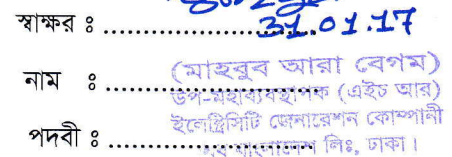 স্বাক্ষর ঃ
31.01.17
নাম ঃ (মাহবুব আরা বেগম)
উপ-মহাব্যবস্থাপক (এইচ আর)
ইলেক্ট্রিসিটি জেনারেশন কোম্পানী
পদবী ঃ
বাংলাদেশ লিঃ, ঢাকা।